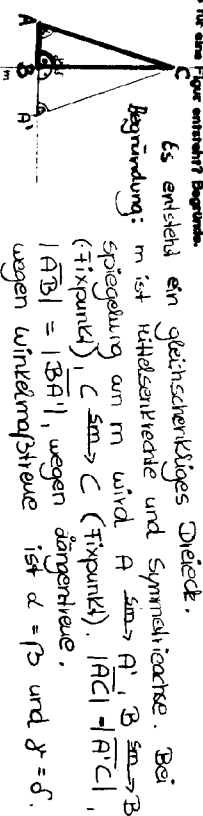 für eine Figur entsteht? Begründe.
Es entsteht ein gleichschenkliges Dreieck.
Begründung: m ist Mittelsenkrechte und Symmetrieachse. Bei
Spiegelung an m wird A Sm→ A', B Sm→ B
(Fixpunkt), C Sm→ C (Fixpunkt). |AC| = |A'C|,
|AB| = |BA'|, wegen Längentreue.
wegen Winkelmaßtreue ist α = β und γ = δ.
A
B
A'
C
m